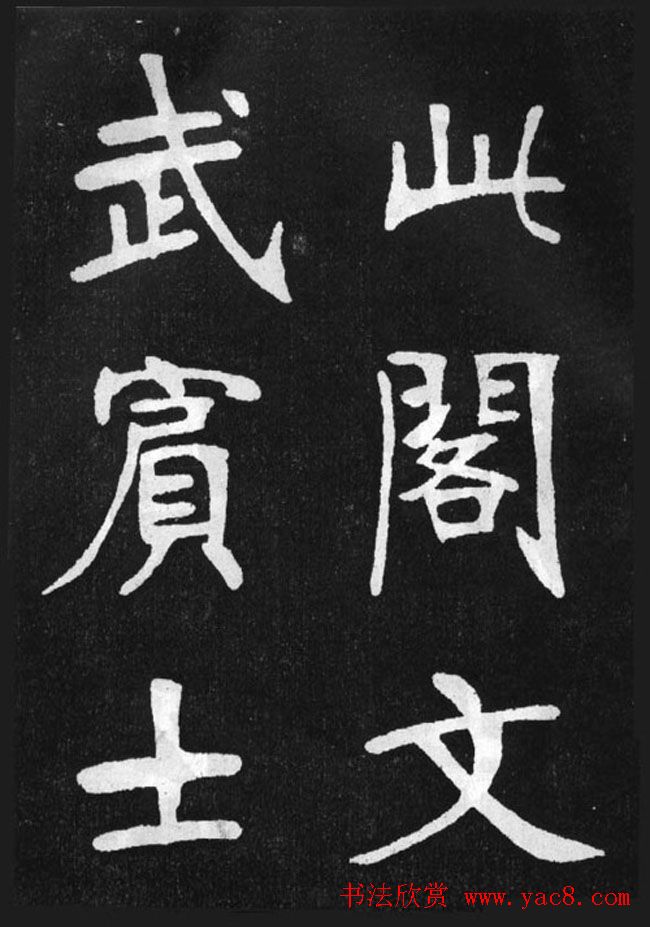 此閣文
武賓士
书法欣赏 www.yac8.com